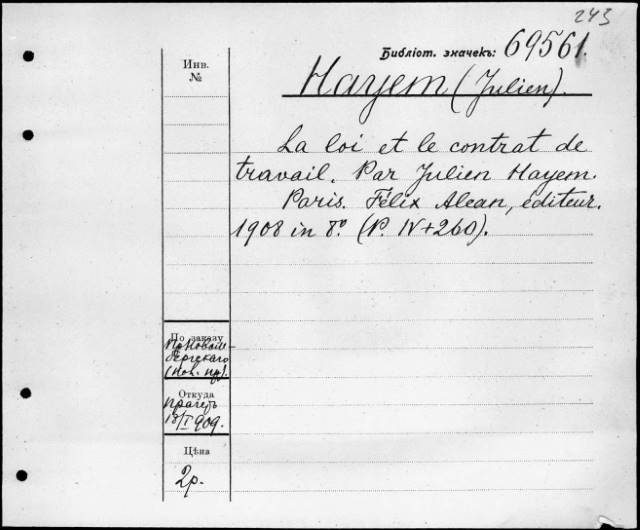 243
Библіот. значекъ: 69561.
Инв.
№
Hayem (Julien).
La loi et le contrat de
travail. Par Julien Hayem.
Paris. Félix Alcan, éditeur.
1908 in 8º. (P. IV+260).
По заказу
бергскаго
Откуда
18/I 909.
Цѣна
2р.